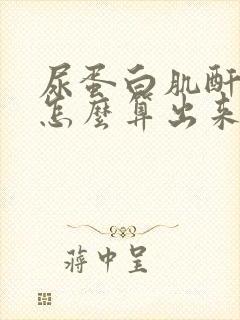 尿蛋白肌酐
怎麼算出来
蔣中呈